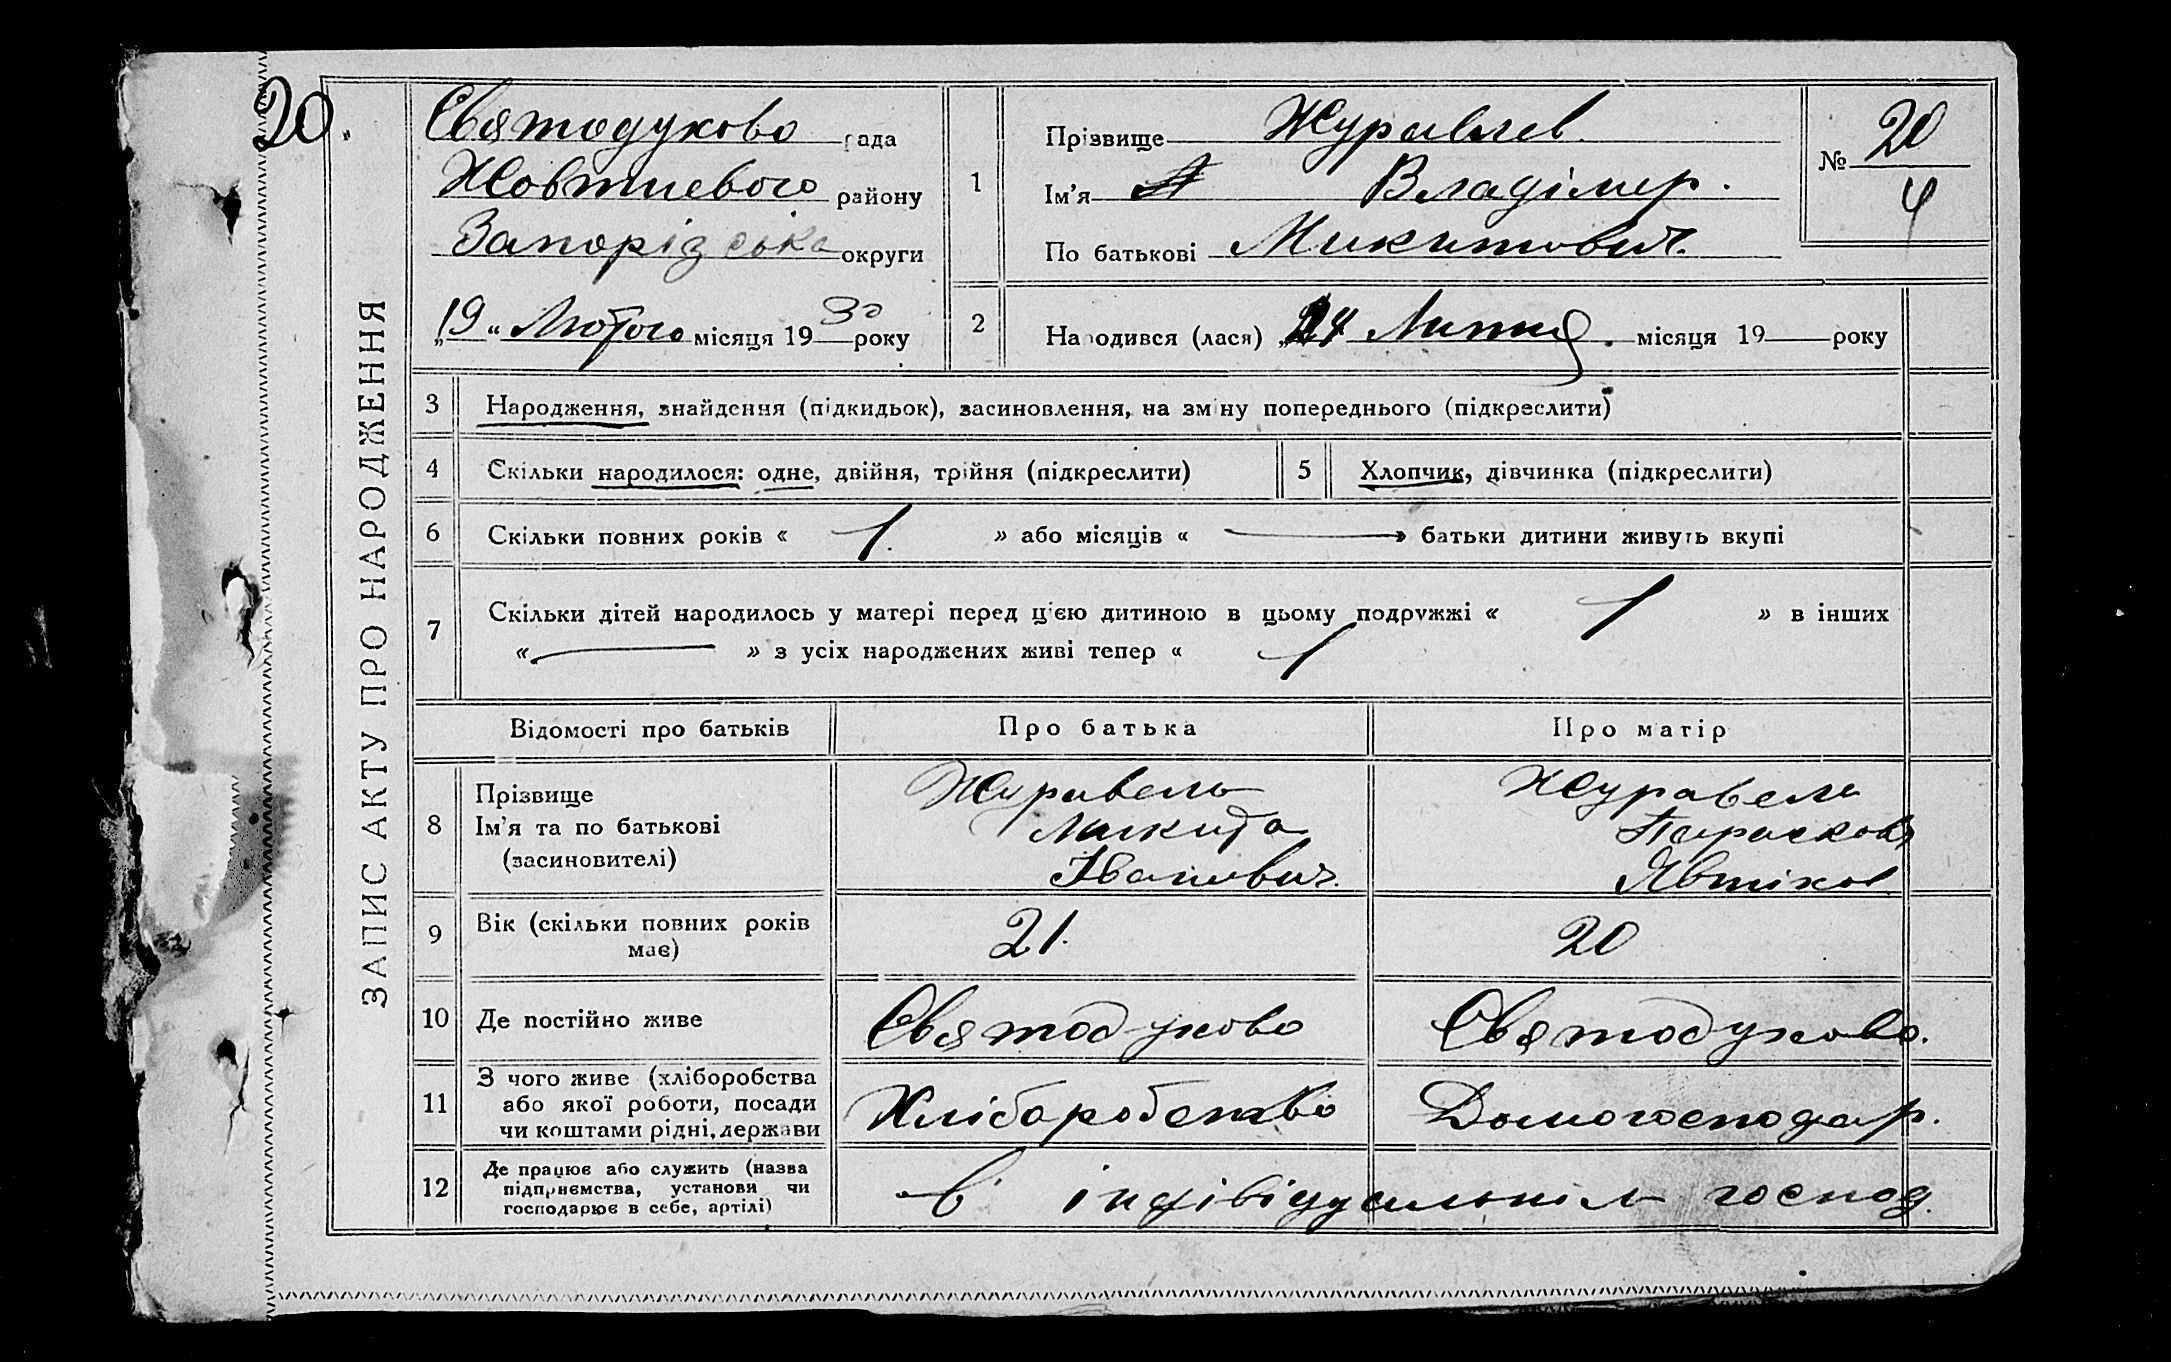 20.
ЗАПИС АКТУ ПРО НАРОДЖЕННЯ
Святодухово рада
Жовтневого району
Запорізська округи
„19“ Лютого місяця 1930 року
1
Прізвище Журавлев
Ім'я Владімер.
По батькові Микитович.
№ 20
4
2
Народився (лася) „24 Липня. місяця 19 року
3 Народження, знайдення (підкидьок), засиновлення, на зміну попереднього (підкреслити)
4 Скільки народилося: одне, двійня, трійня (підкреслити)
5 Хлопчик, дівчинка (підкреслити)
6 Скільки повних років « 1. » або місяців « — » батьки дитини живуть вкупі
7 Скільки дітей народилось у матері перед цією дитиною в цьому подружжі « 1 » в інших
« — » з усіх народжених живі тепер « 1
Відомості про батьків Про батька Про матір
8
Прізвище
Ім'я та по батькові
(засиновителі)
Журавель
Микита
Іванович.
Журавель
Парасковя
Явтіхов
9 Вік (скільки повних років
має)
21.
20
10 Де постійно живе Святодухово Святодухово.
11
З чого живе (хліборобства
або якої роботи, посади
чи коштами рідні, держави
Хліборобство
Домогосподар.
12
Де працює або служить (назва
підприємства, установи чи
господарює в себе, артілі)
в індівідуальнім господ.